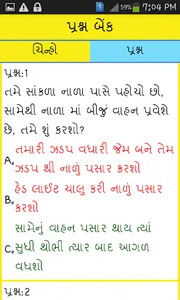 7:04 PM
પ્રશ્ન બેંક
ચિન્હો
પ્રશ્ન
પ્રશ્ન:1
તમે સાંકળા નાળા પાસે પહોચો છો,
સામેથી નાળા માં બીજું વાહન પ્રવેશે
છે, તમે શું કરશો?
તમારી ઝડપ વધારી જેમ બને તેમ
A. ઝડપ થી નાળું પસાર કરશો
હેડ લાઈટ ચાલુ કરી નાળું પસાર
B. કરશો
સામેનું વાહન પસાર થાય ત્યાં
C. સુધી થોભી ત્યાર બાદ આગળ
વધશો
પ્રશ્ન:2